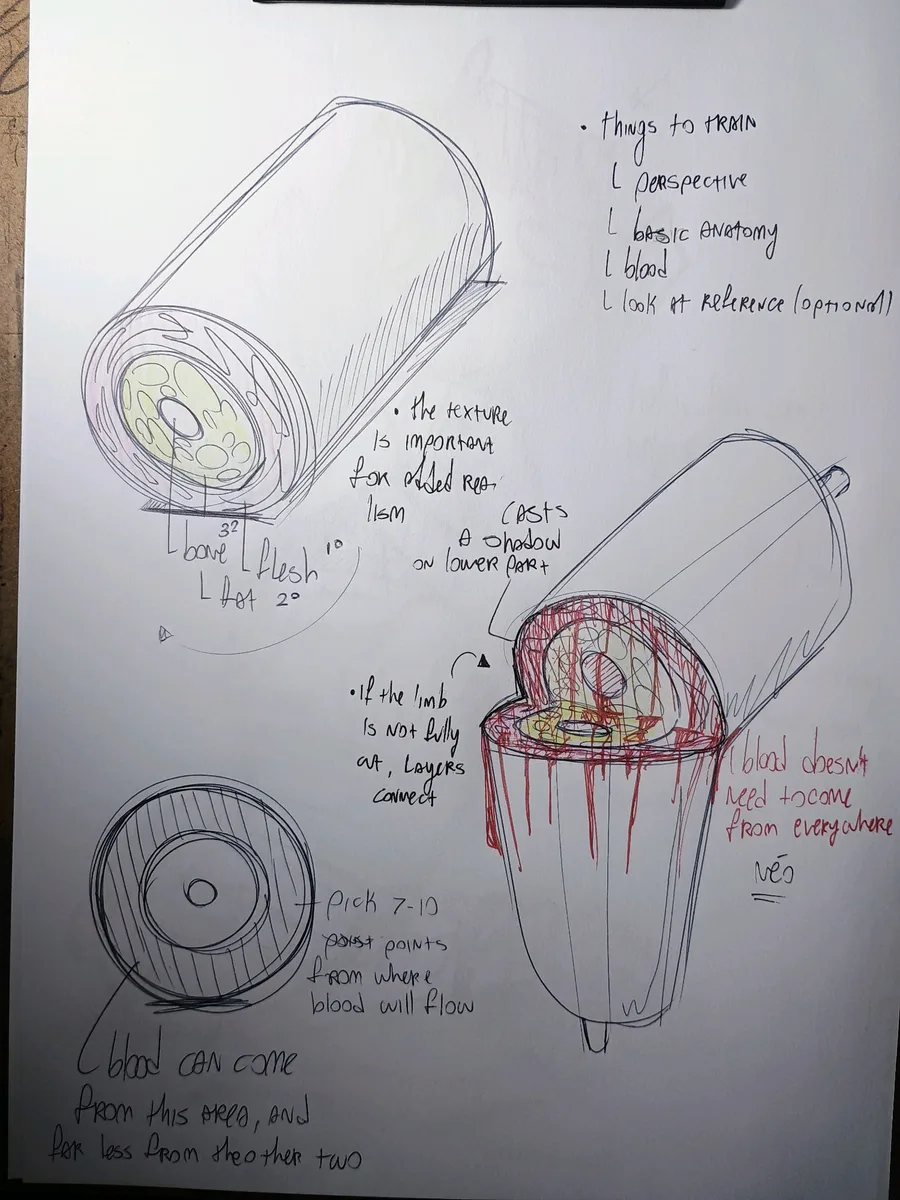 • things to TRAIN
L perspective
L basic anatomy
L blood
L look at reference (optional)
• the texture
is important
for added rea-
lism
bone 3º
L flesh 1º
L fat 2º
casts
a shadow
on lower part
• If the limb
is not fully
cut, layers
connect
L blood doesn't
need to come
from everywhere
pick 7-10
points
from where
blood will flow
L blood can come
from this area, and
far less from the other two